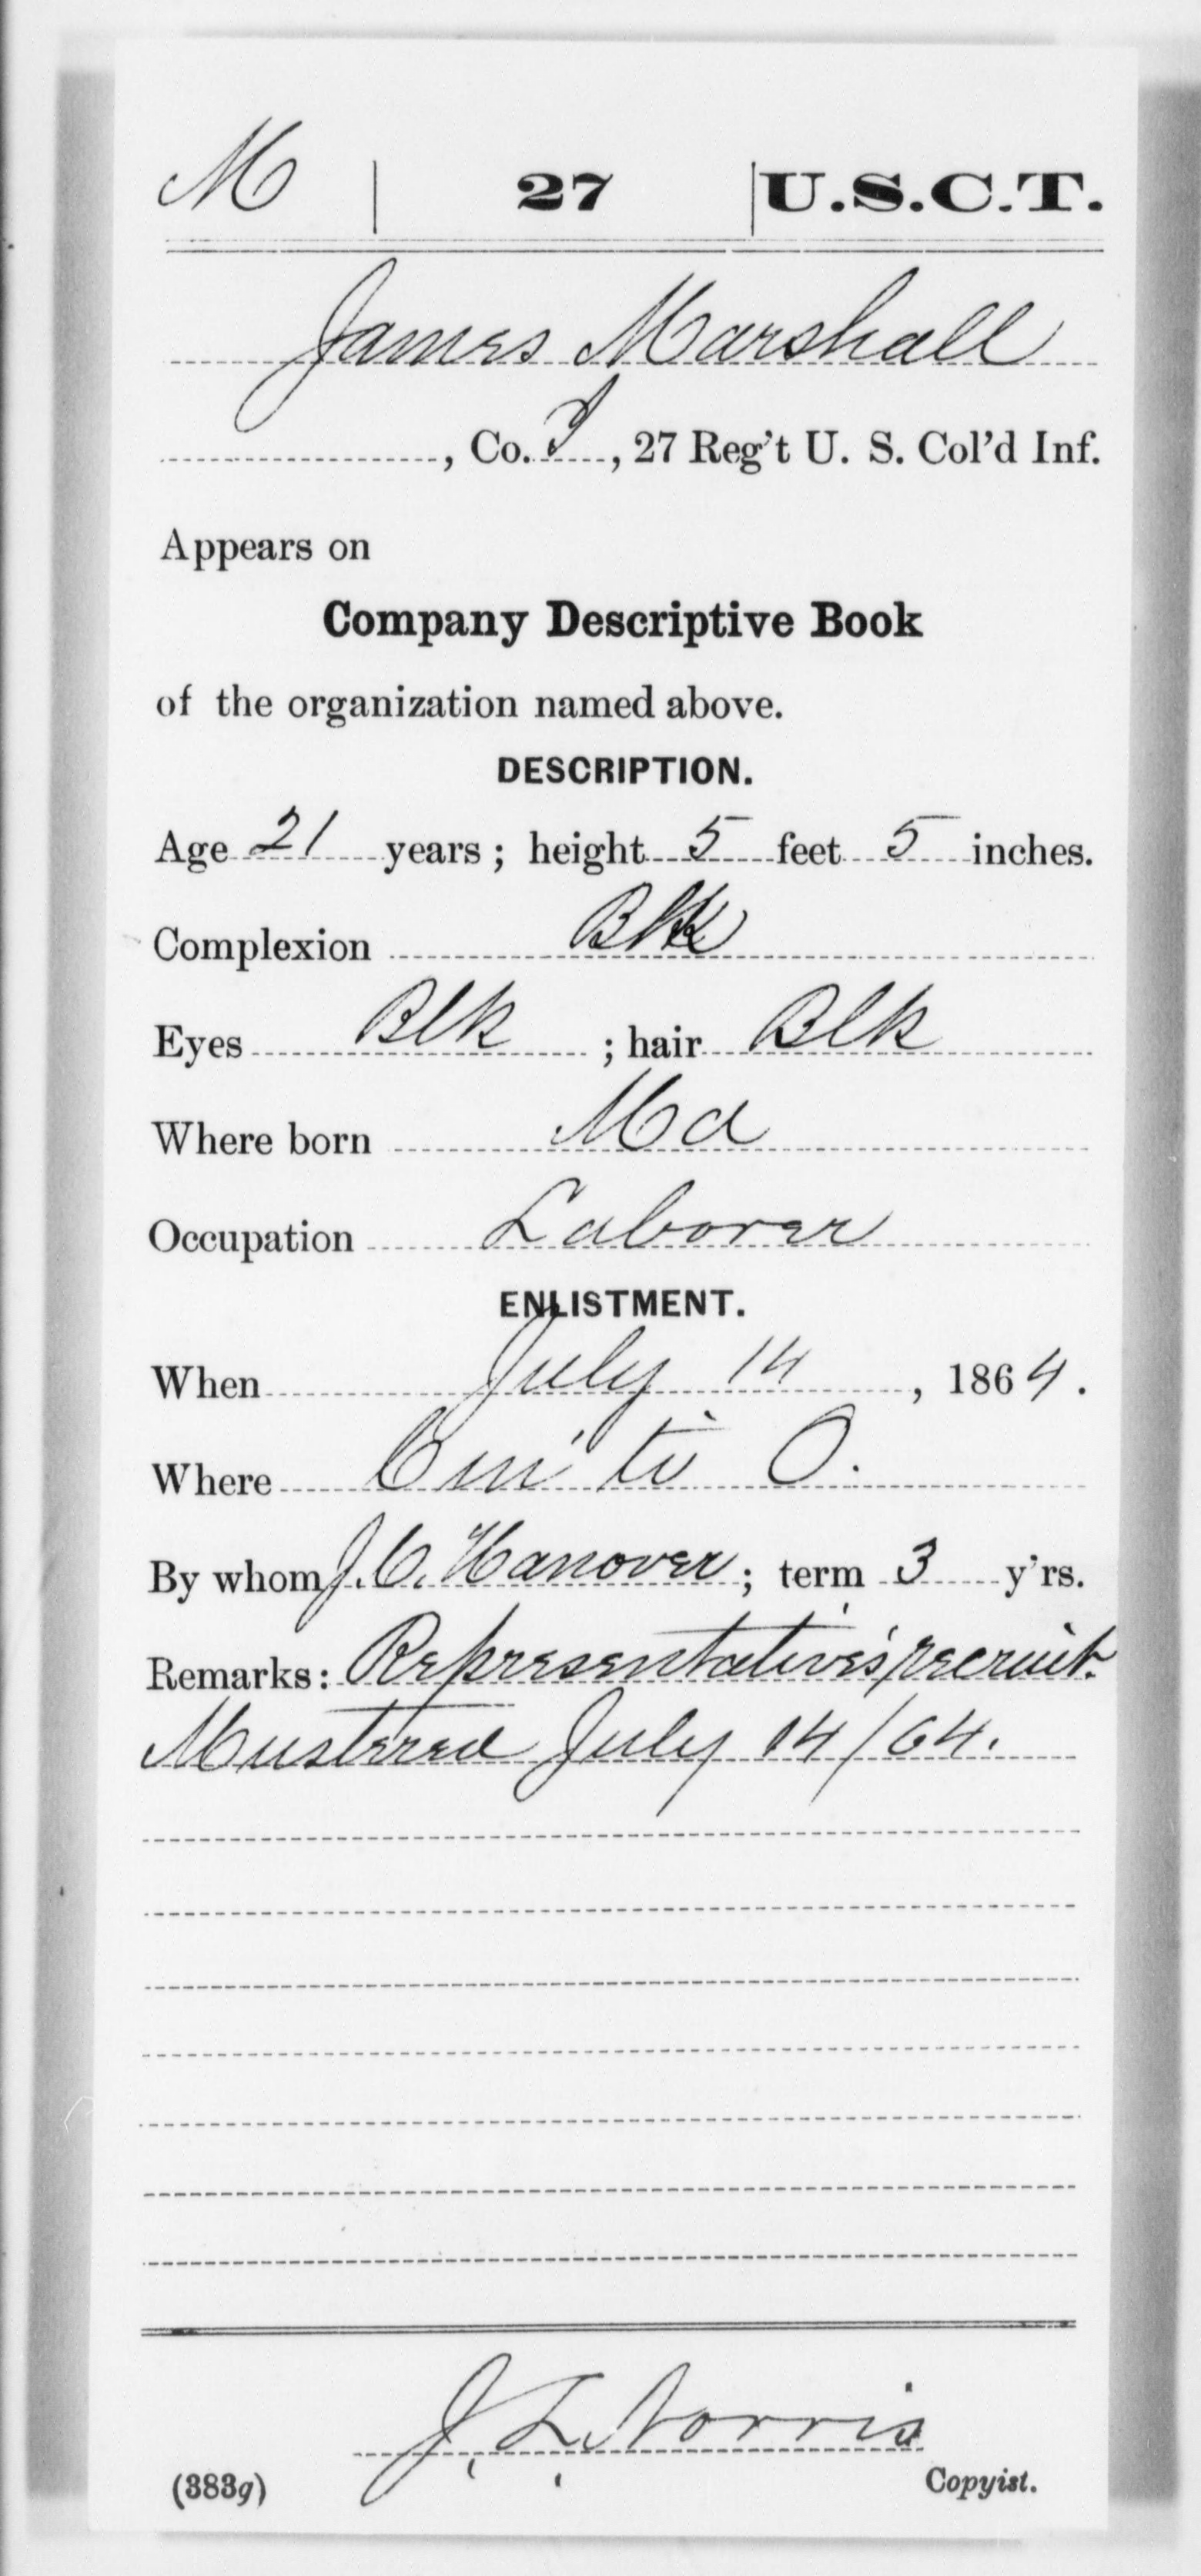 M | 27 | U.S.C.T.
James Marshall
, Co. I, 27 Reg't U. S. Col'd Inf.
Appears on
Company Descriptive Book
of the organization named above.
DESCRIPTION.
Age 21 years; height 5 feet 5 inches.
Complexion Blk
Eyes Blk ; hair Blk
Where born Md
Occupation Laborer
ENLISTMENT.
When July 14, 1864.
Where Cin'ti O.
By whom J. C. Hanover; term 3 y'rs.
Remarks: Representative's recruit.
Mustered July 14/64.
J. L. Norris
(383g) Copyist.